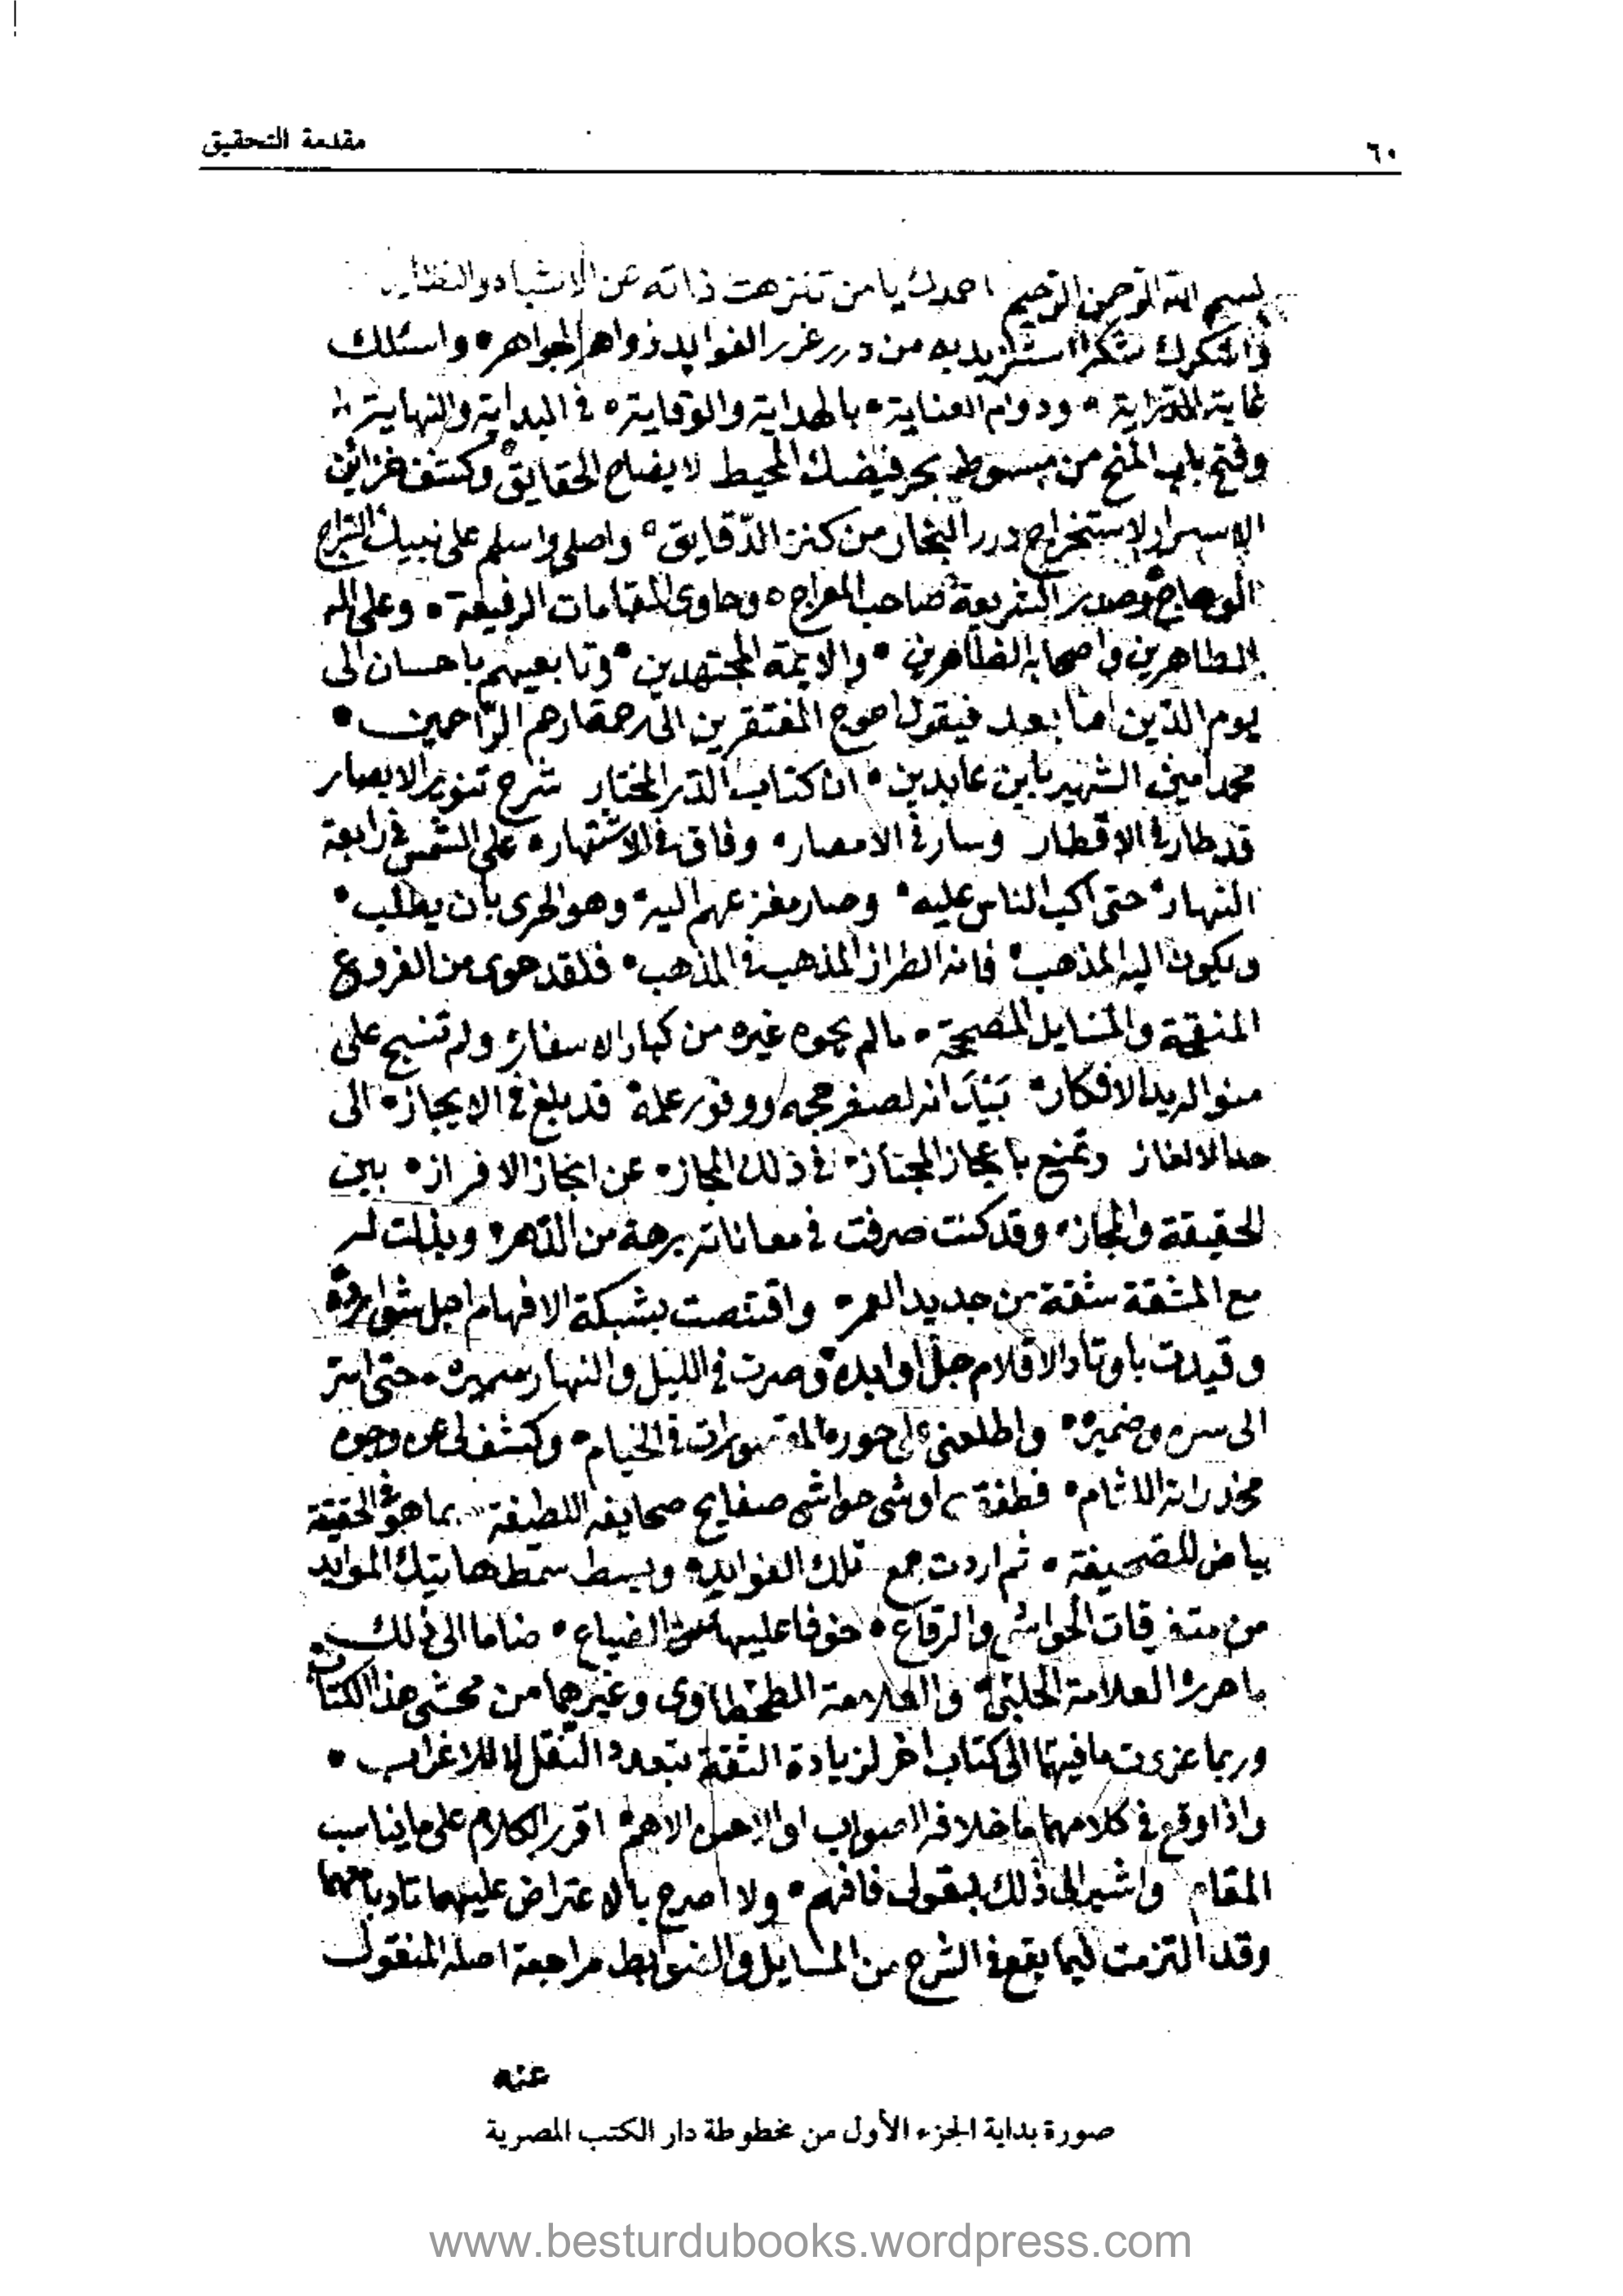 ٦٠ مقدمة التحقيق
بسم الله الرحمن الرحيم احمدك يا من تنزهت ذاته عن الاشباه والنظاير
واشكرك شكرا استزيد به من درر غرر الفوايد زواهر الجواهر • واسئلك
غاية الدراية • ودوام العناية • بالهداية والوقاية • في البداية والنهاية •
وفتح باب المنح من مبسوط بحر فيضك المحيط لايضاح الحقايق • وكشف خزاين
الاسرار لاستخراج درر البحار من كنز الدقايق • واصلي واسلم على نبيك السراج
الوهاج • وصدر الشريعة صاحب المعراج • وحاوي المقامات الرفيعة • وعلى اله
الطاهرين واصحابه الظاهرين • والايمة المجتهدين • وتابعيهم باحسان الى
يوم الدين اما بعد فيقول احوج المفتقرين الى رحمة ارحم الراحمين •
محمد امين الشهير بابن عابدين • ان كتاب الدر المختار شرح تنوير الابصار
قد طار في الاقطار وسار في الامصار • وفاق في الاشتهار • على الشمس في رابعة
النهار • حتى اكب الناس عليه • وصار مفزعهم اليه • وهو الحرى بان يطلب •
ويكون اليه المذهب • فانه الطراز المذهب في المذهب • فلقد حوى من الفروع
المنقحة والمسايل المصححة • مالم يحوه غيره من كبار الاسفار • ولم تنسج على
منواله يد الافكار • بَيْدَ انه لصغر حجمه ووفور علمه • قد بلغ في الايجاز • الى
حد الالغاز وتمنع باعجاز المجتاز • في ذلك المجاز • عن انجاز الافراز • بين
الحقيقة والمجاز • وقد كنت صرفت في معاناته برهة من الدهر • وبذلت له
مع المشقة شقة من جديد العمر • واقتنصت بشبكة الافهام اجل شوارده
وقيدت باوتاد الاقلام جل اوابده • وصرت في الليل والنهار سميره • حتى اسر
الى سره وضميره • واطلعني على حوره المقصورات في الخيام • وكشف لي عن وجوه
مخدراته اللثام • فطفقت اوشى حواشى صفايح صحايفه اللطيفة • بما هو في الحقيقة
بياض للصحيفة • ثم اردت جمع تلك الفوايد • وبسط سمط هاتيك الموايد
من متفرقات الحواشي والرقاع • خوفا عليها من الضياع • ضاما الى ذلك
ما حرره العلامة الحلبي • والعلامة الطحطاوى وغيرهما من محشى هذا الكتاب
وربما عزوت ما فيهما الى كتاب اخر لزيادة الثقة بتعدد النقل لا للاغراب •
واذا وقع في كلامهما ما خلافه الصواب او الاحسن الاهم • اقرر الكلام على ما يناسب
المقام واشير الى ذلك بقولى فافهم • ولا اصرح بالاعتراض عليهما تادبا معهما
وقد التزمت فيما يقع في الشرح من المسايل والضوابط مراجعة اصله المنقول
عنه
صورة بداية الجزء الأول من مخطوطة دار الكتب المصرية
www.besturdubooks.wordpress.com